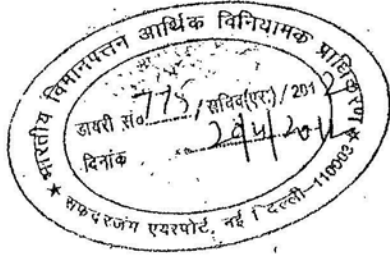 भारतीय विमानपत्तन आर्थिक विनियामक प्राधिकरण
डायरी सं० 775 / सचिव(एरा) / 2012
दिनांक
★ सफदरजंग एयरपोर्ट, नई दिल्ली-110003 ★